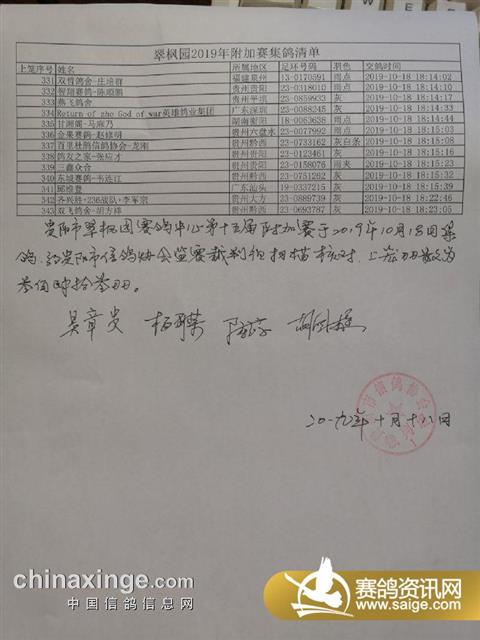 翠枫园2019年附加赛集鸽清单
上笼序号 姓名 所属地区 足环号码 羽色 交鸽时间
331 双哲鸽舍-庄培群 福建泉州 13-0170591 雨点 2019-10-18 18:14:02
332 智翔赛鸽-陈顺鹏 贵州贵阳 23-0318010 雨点 2019-10-18 18:14:10
333 燕飞鸽舍 贵州平坝 23-0859933 灰 2019-10-18 18:14:17
334 Return of zhe God of war英雄鸽业集团 广东深圳 23-0088245 灰 2019-10-18 18:14:33
335 甘湘蔺-马麻乃 湖南衡阳 18-0063638 雨点 2019-10-18 18:14:44
336 金果赛鸽-赵修明 贵州六盘水 23-0077992 雨点 2019-10-18 18:15:03
337 百里杜鹃信鸽协会-龙刚 贵州黔西 23-0733162 灰白条 2019-10-18 18:15:08
338 鸽友之家-张应才 贵州贵阳 23-0123461 灰 2019-10-18 18:15:16
339 三鑫众合 贵州贵阳 23-0158076 雨夹 2019-10-18 18:15:23
340 东城赛鸽-韦连江 贵州黔西 23-0751262 灰 2019-10-18 18:15:32
341 邱维登 广东汕头 19-0337215 灰 2019-10-18 18:15:39
342 齐兴胜+236战队+李军宗 贵州大方 23-0889739 灰 2019-10-18 18:22:46
343 双飞鸽舍-胡方祥 贵州黔西 23-0693787 灰 2019-10-18 18:23:05
贵阳市翠枫园赛鸽中心第十五届附加赛于2019年10月18日集
鸽,经贵阳市信鸽协会监赛裁判组扫描核对,上笼羽数为
叁佰肆拾叁羽。
二〇一九年十月十八日
chinaxinge.com
中国信鸽信息网
赛鸽资讯网
www.saige.com